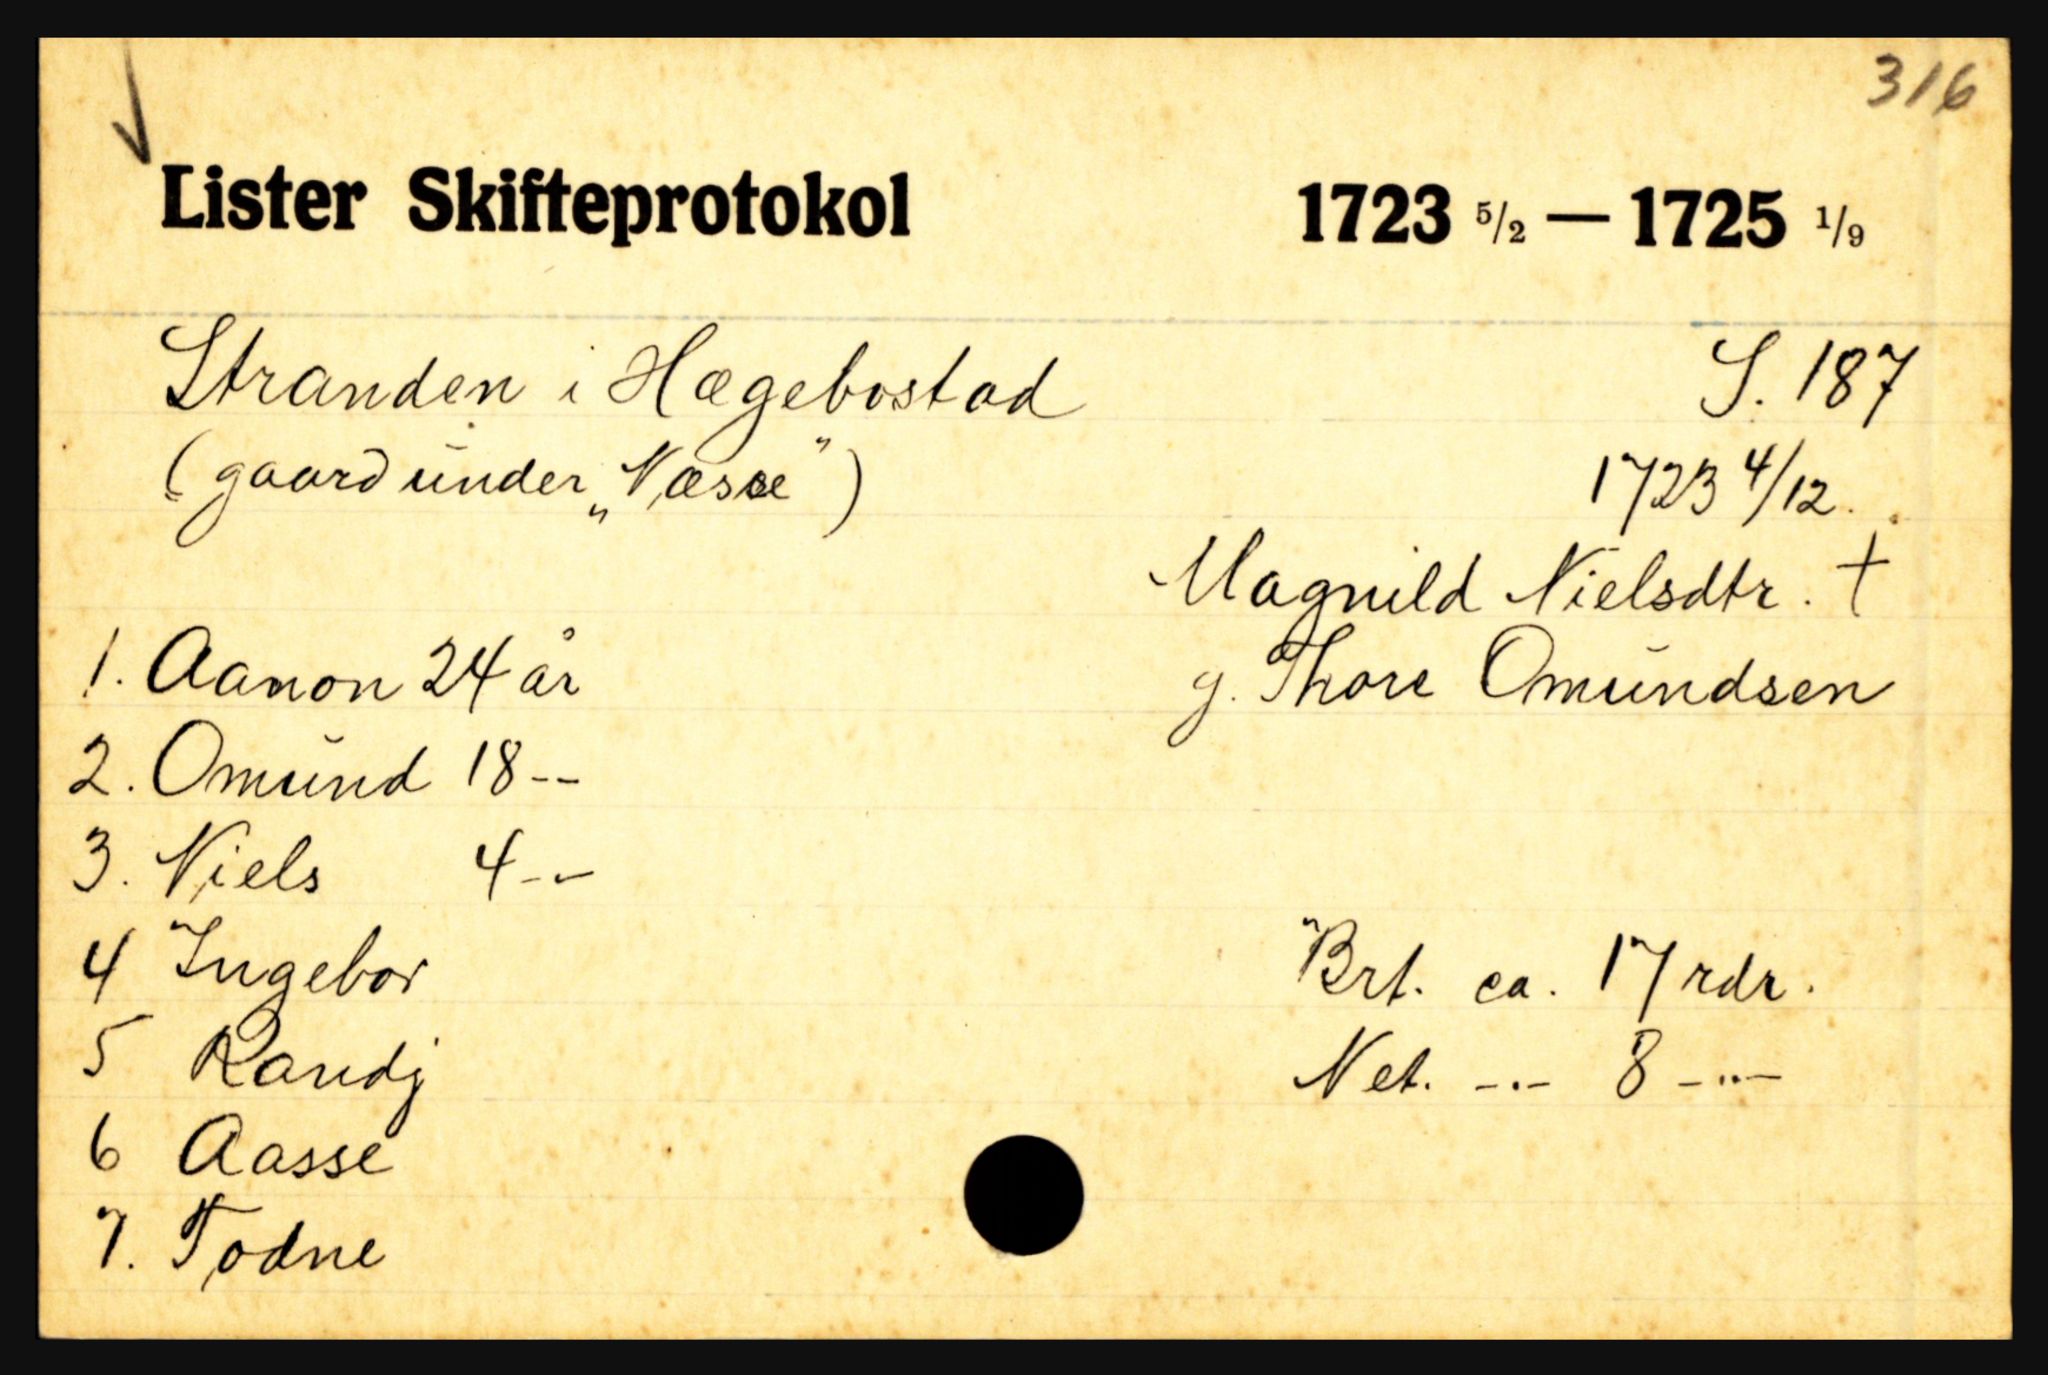 316
Lister Skifteprotokol 1723 5/2 — 1725 1/9
Stranden i Hægebostad S. 187
(gaard under „Næsse") 1723 4/12.
Magnild Nielsdtr. †
1. Aanon 24 år g. Thore Omundsen
2. Omund 18 --
3. Niels 4 --
4 Ingebor Brt. ca. 17 rdr.
5 Randj Net. -.- 8 -..-
6 Aasse
7. Todne